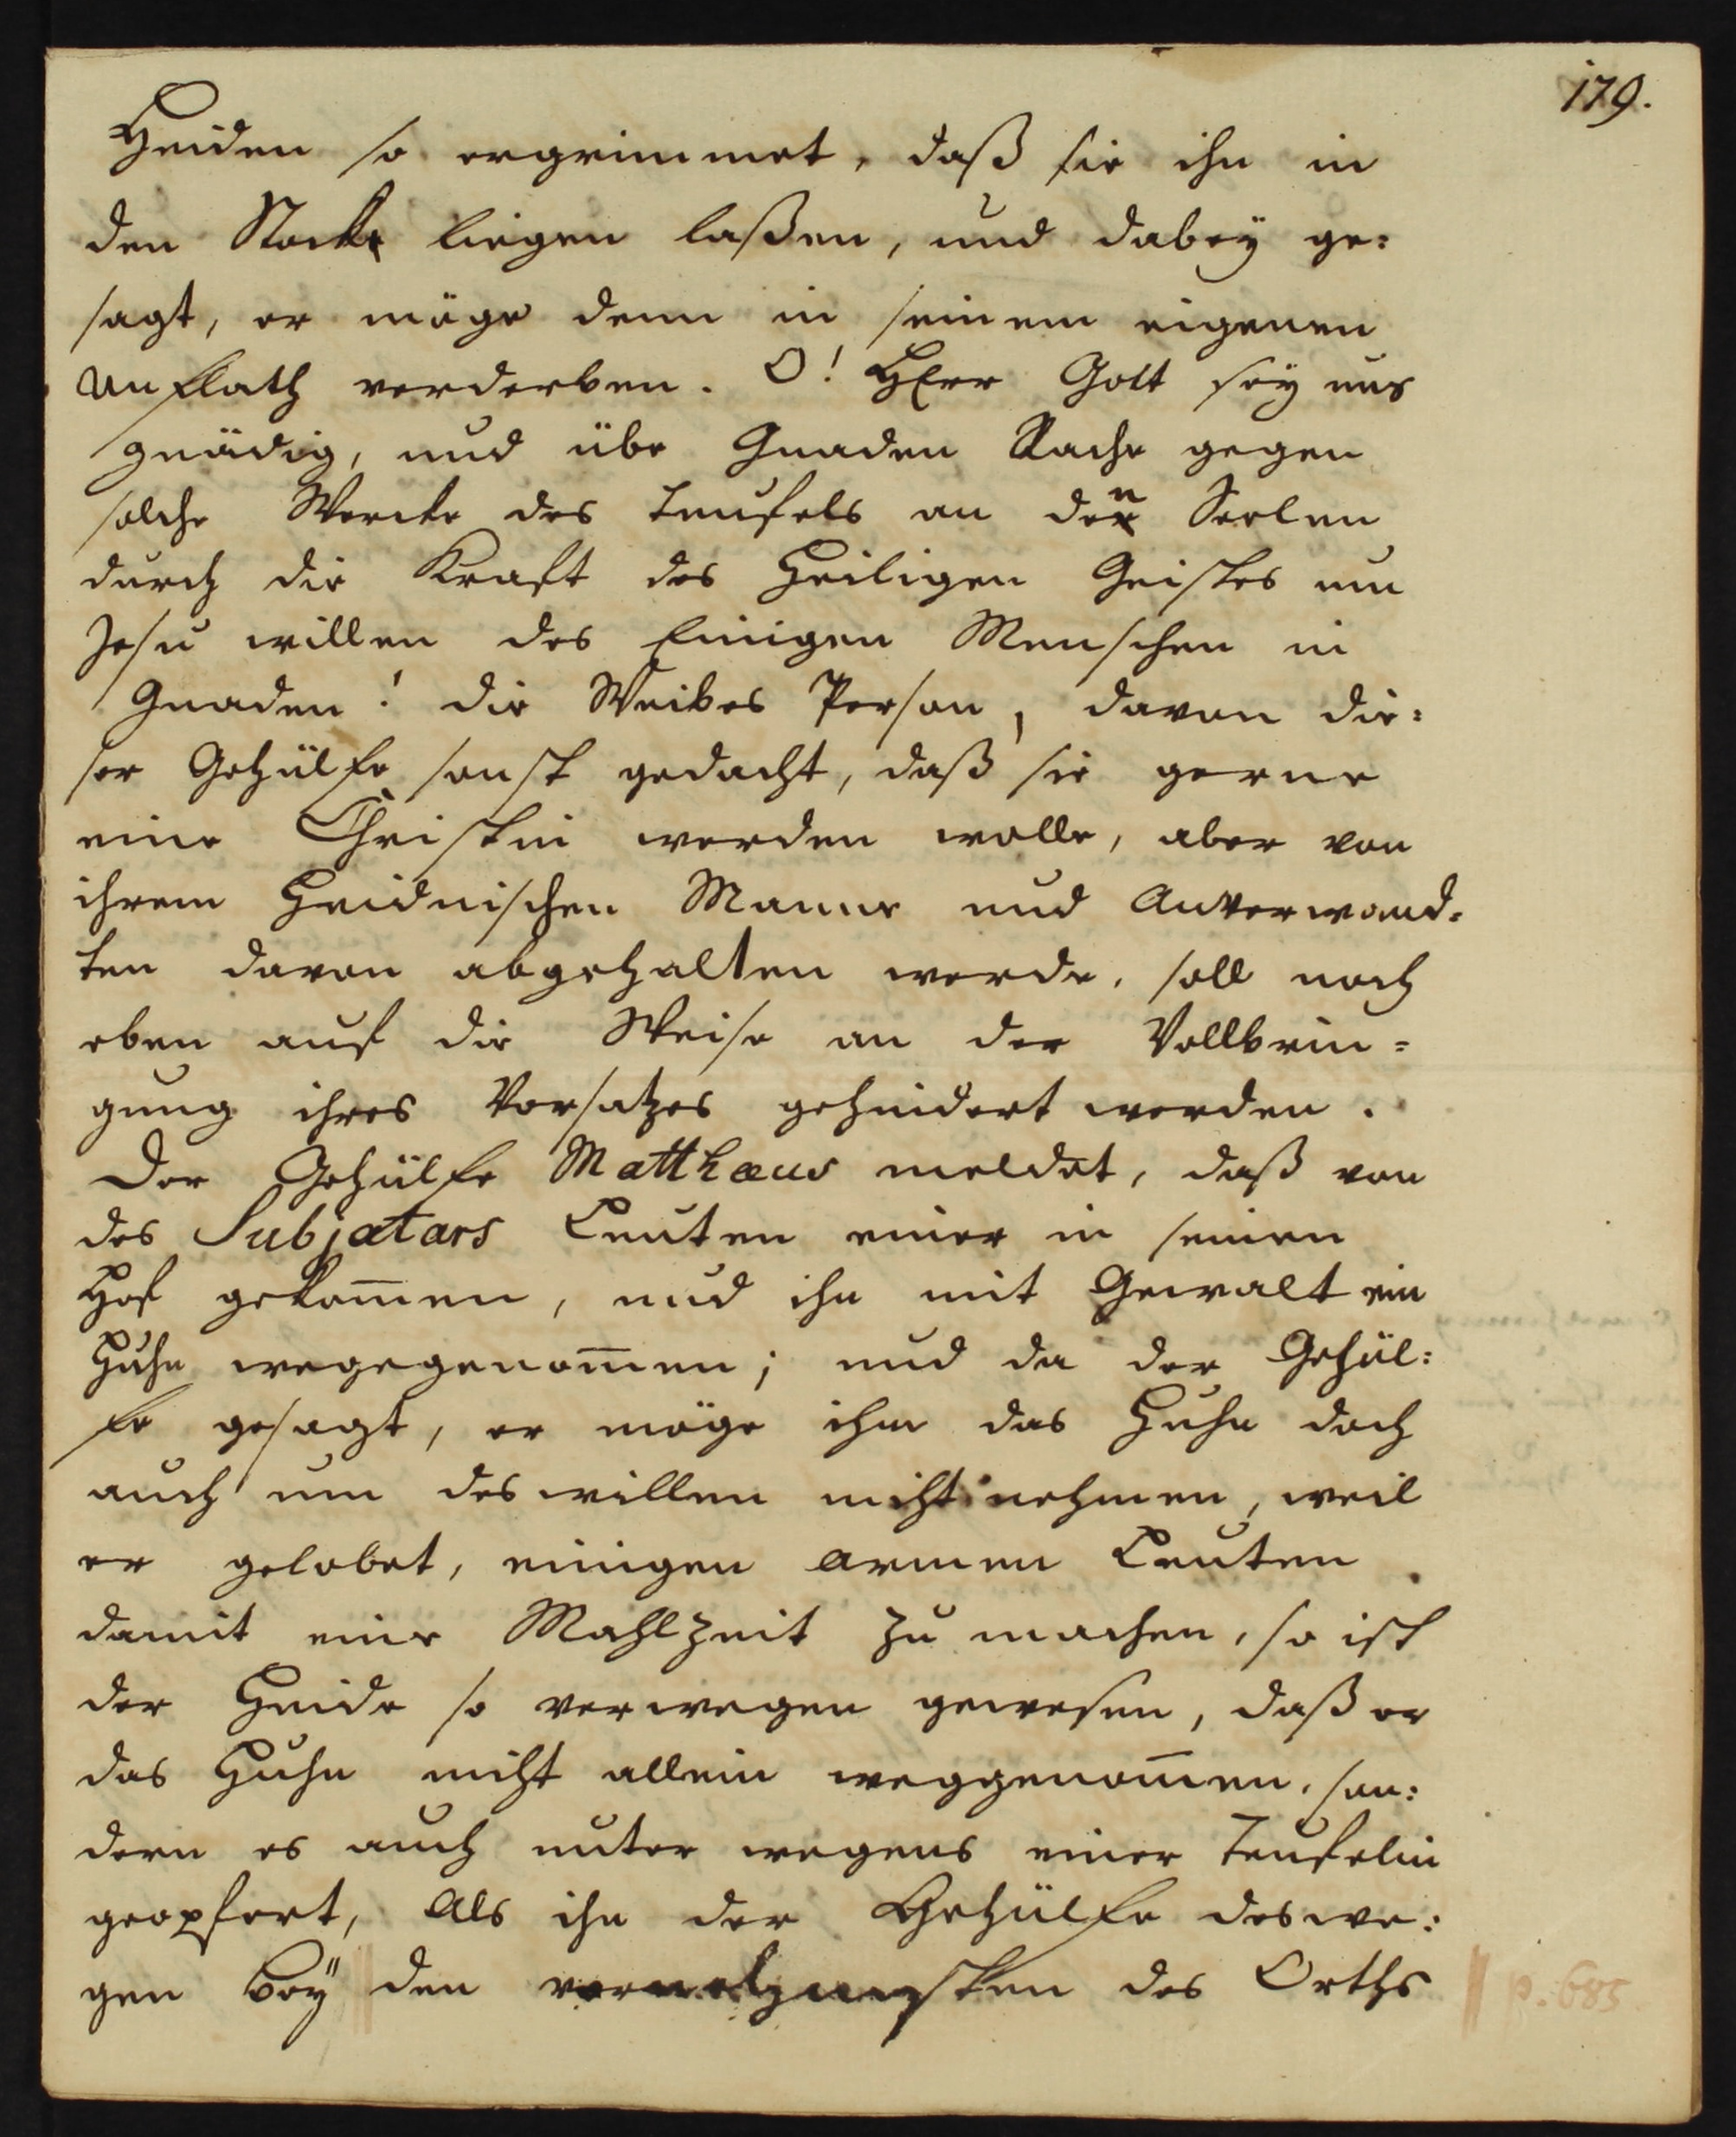 179.
Heiden so ergrimmet, daß sie ihn in
den Stock liegen laßen, und dabeÿ ge:
sagt, er möge denn in seinem eigenen
Unflath verderben. O! HErr Gott seÿ uns
gnädig, und übe Gnaden Rache gegen
solche Wercke des Teufels an den Seelen
durch die Kraft des Heiligen Geistes um
Jesu willen des Einigen Menschen in
Gnaden! die Weibes Person, davon die:
ser Gehülfe sonst gedacht, daß sie gerne
eine Christin werden wolle, aber von
ihrem Heidnischen Manne und Anverwand:
ten davon abgehalten werde, soll noch
eben auf die Weise an der Vollbrin=
gung ihres Vorsatzes gehindert werden.
Der Gehülfe Matthæus meldet, daß von
des Subjatars Leuten einer in seinen
Hof gekom̄en, und ihn mit Gewalt ein
Huhn wegegenom̄en; und da der Gehül:
fe gesagt, er möge ihm das Huhn doch
auch um deswillen nicht nehmen, weil
er gelobet, einigen armen Leuten
damit eine Mahlzeit zu machen, so ist
der Heide so verwegen gewesen, daß er
das Huhn nicht allein weggenom̄en, son:
dern es auch unter wegens einer Teufelin
geopfert, Als ihn der Gehülfe deswe:
gen beÿ den vornehmsten des Orths
p. 685